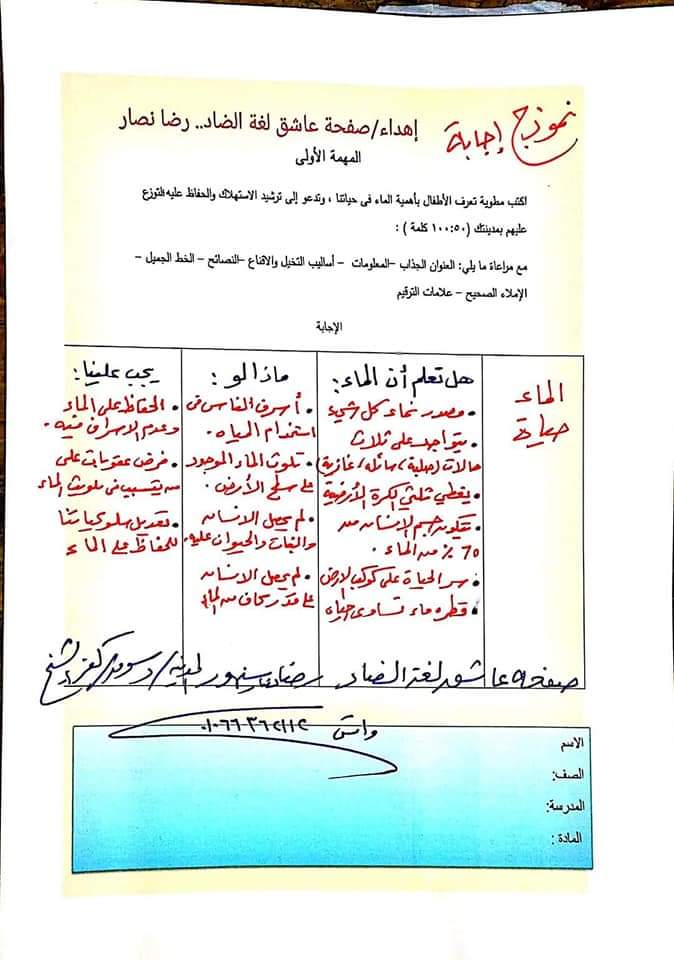 نموذج إجابة
إهداء/صفحة عاشق لغة الضاد.. رضا نصار
المهمة الأولى
اكتب مطوية تعرف الأطفال بأهمية الماء فى حياتنا ، وتدعو إلى ترشيد الاستهلاك والحفاظ عليه التوزع
عليهم بمدينتك (١٠٠:٥٠ كلمة ) :
مع مراعاة ما يلي: العنوان الجذاب –المعلومات – أساليب التخيل والاقناع –النصائح – الخط الجميل –
الإملاء الصحيح – علامات الترقيم
الإجابة
الماء
حياة
هل تعلم أن الماء:
• مصدر نماء كل شيء
• يتواجد على ثلاث
حالات (صلبة/سائلة/غازية)
• يغطي ثلثي الكرة الأرضية
• تتكون جسم الإنسان من
70 ٪ من الماء .
• سر الحياة على كوكب الارض
• قطرة ماء تساوى حياة
ماذا لو :
• أسرف الناس فى
استخدام المياه .
• تلوث الماء الموجود
على سطح الأرض .
• لم يحصل الانسان
والنبات والحيوان عليه.
• لم يحصل الانسان
على قدر كاف من الماء
يجب علينا:
• الحفاظ على الماء
وعدم الاسراف فيه .
• فرض عقوبات على
من يتسبب فى تلويث الماء
• تعديل سلوكياتنا
للحفاظ على الماء
صفحة عاشق لغة الضاد رضا نصار سنهور المدينة/دسوق/كفر الشيخ
واتس ٠١٠٦٦٣٦٢١١٢
الاسم
الصف:
المدرسة:
المادة :